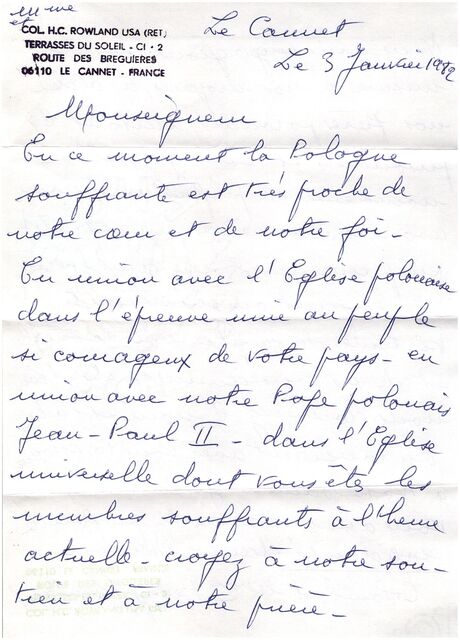 Mme
et
COL. H.C. ROWLAND USA (RET)
TERRASSES DU SOLEIL - CI · 2
ROUTE DES BREGUIERES
06110 LE CANNET - FRANCE
Le Cannet
Le 3 Janvier 1982
Monseigneur
En ce moment la Pologne
souffrante est très proche de
notre cœur et de notre foi -
En union avec l'Eglise polonaise
dans l'épreuve unie au peuple
si courageux de votre pays - en
union avec notre Pape polonais
Jean-Paul II - dans l'Eglise
universelle dont vous êtes les
membres souffrants à l'heure
actuelle croyez à notre sou-
tien et à notre prière -